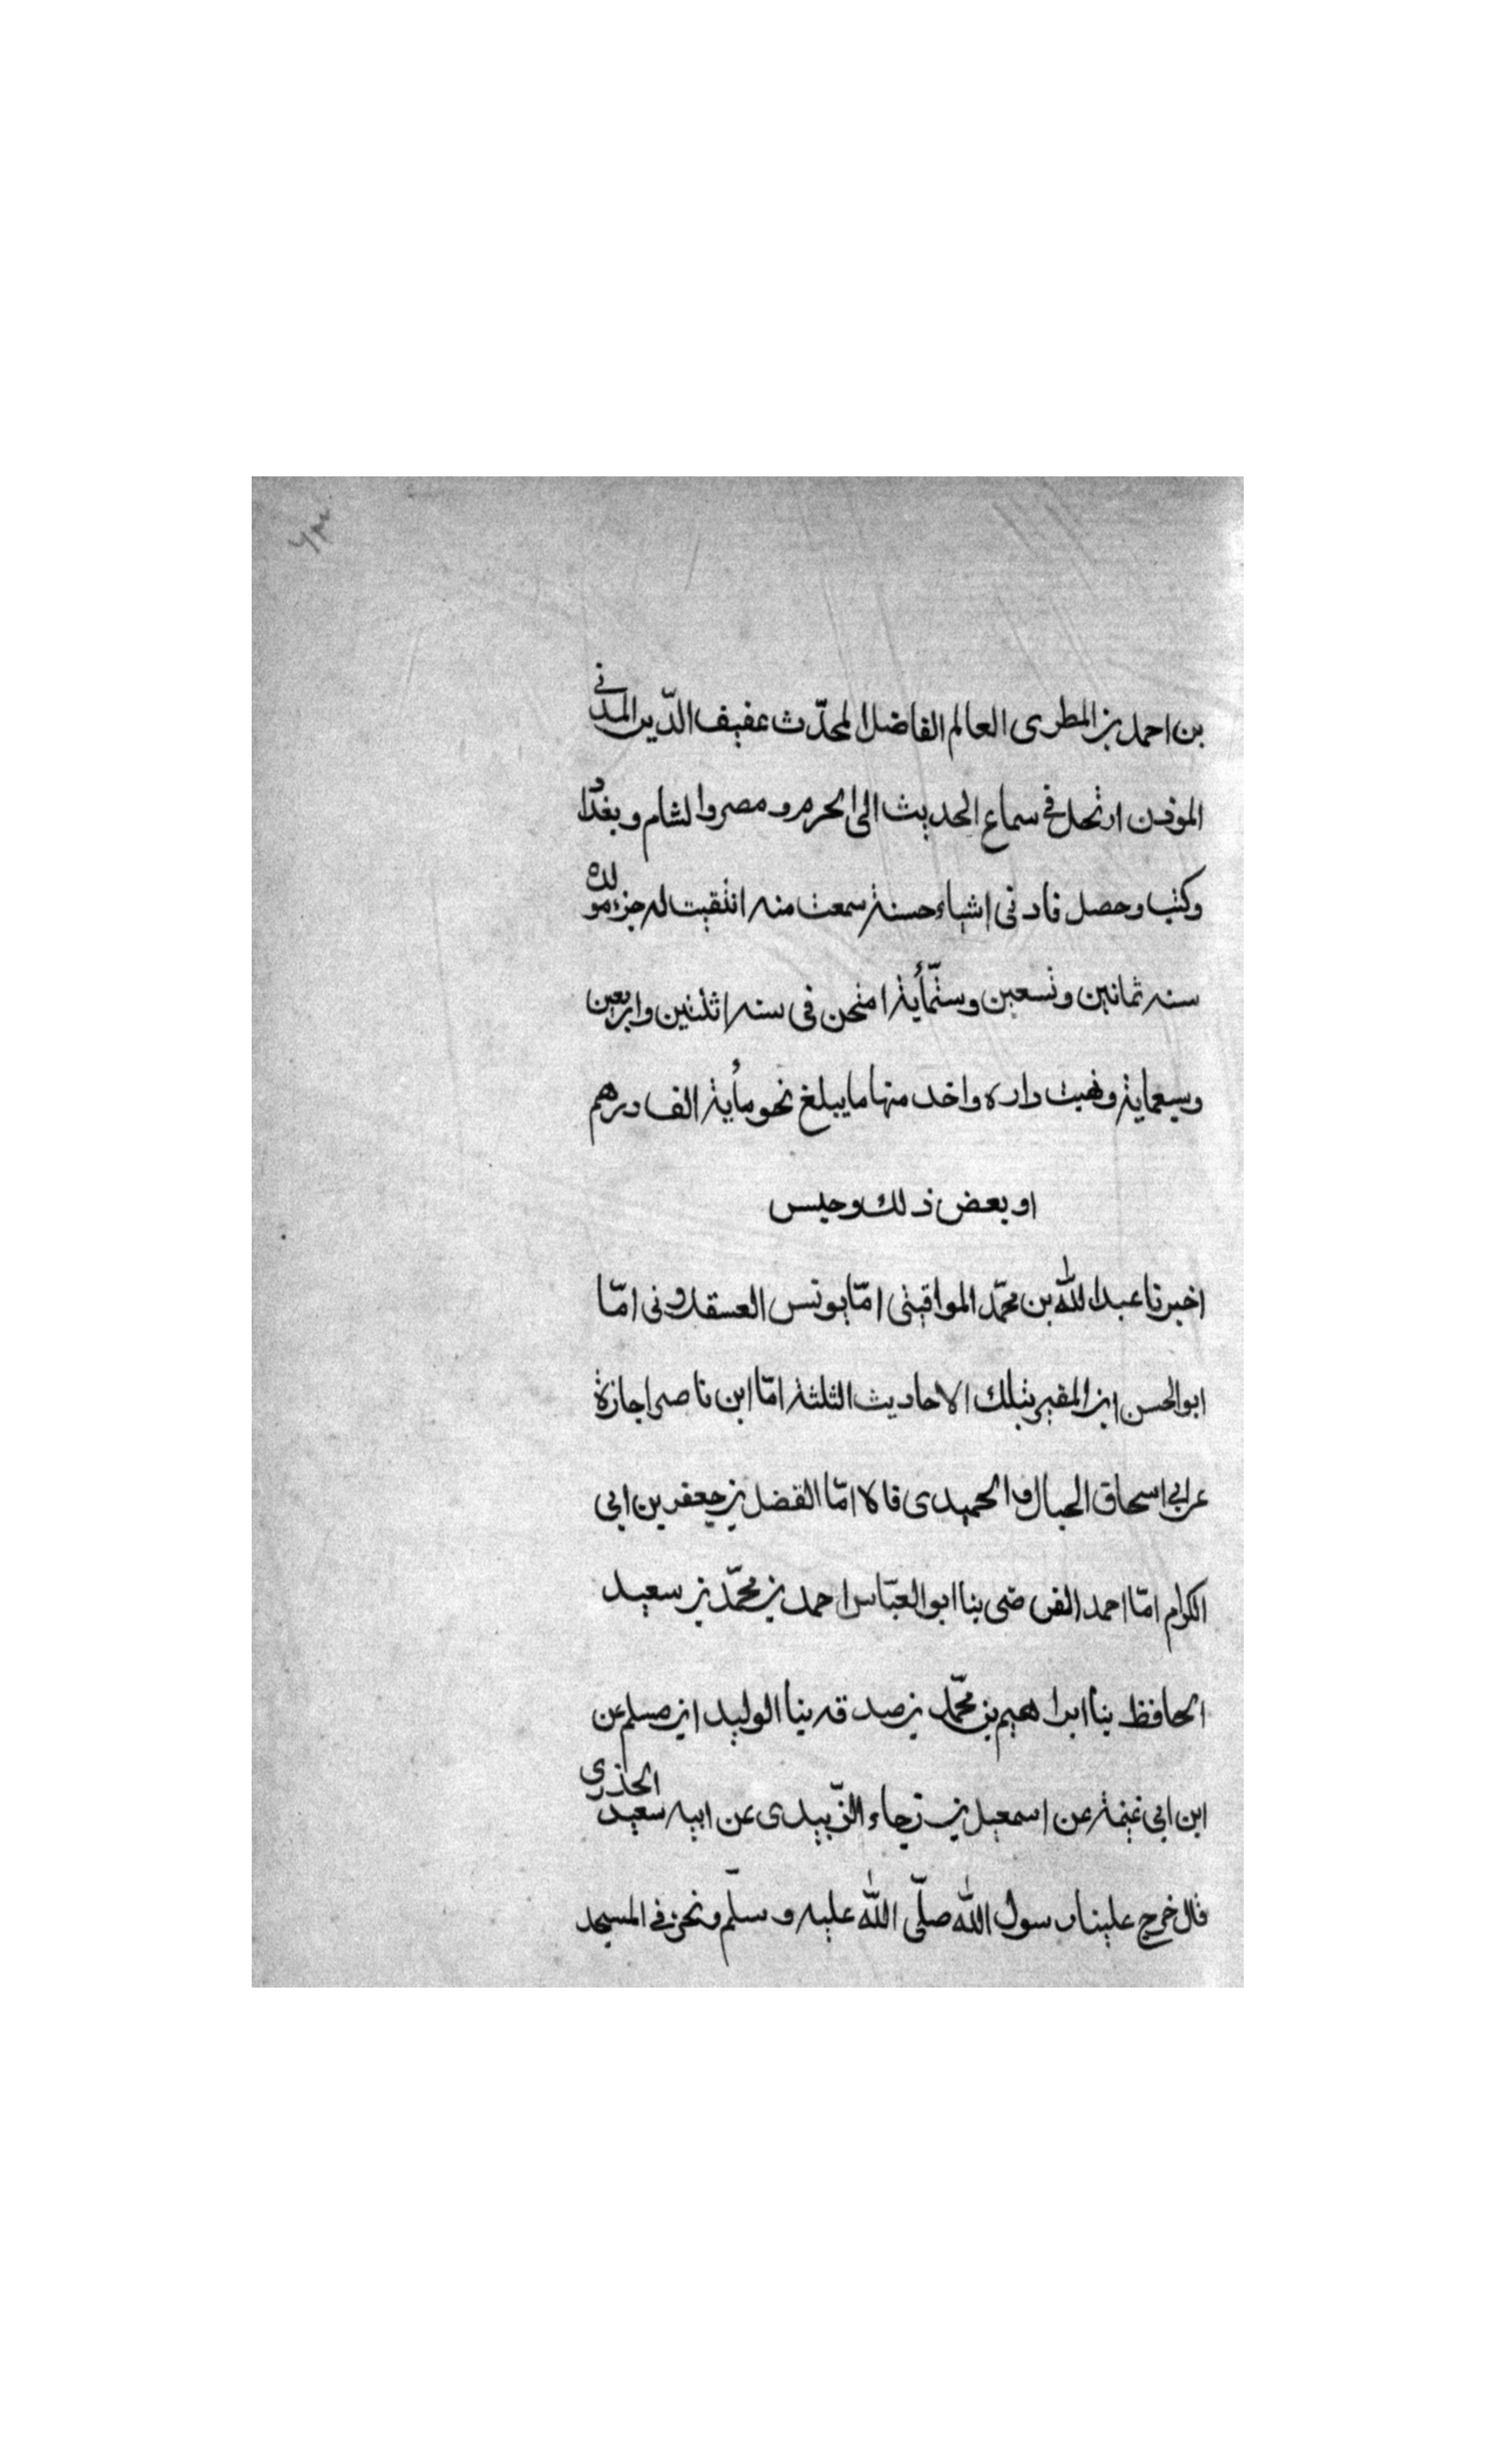 ٦٣
بن احمد بن المطرى العالم الفاضل المحدّث عفيف الدّين المدنى
الموذن ارتحل فى سماع الحديث الى الحرم و مصر والشام و بغداد
وكتب وحصل فادنى اشياء حسنة سمعت منه انتقيت له جزء مولده
سنه ثمانين وتسعين وستّمأية امتحن فى سنه اثنتين واربعين
وسبعماية ونهبت داره واخذ منها ما يبلغ نحو مأية الف درهم
او بعض ذلك وحبس
اخبرنا عبد الله بن محمّد المواقيتى امّا يونس العسقلانى امّا
ابو الحسن ابن المقير بتلك الاحاديث الثلثة امّا ابن ناصر اجازة
عن ابى اسحاق الحبال و الحميدى قالا امّا الفضل بن جعفر بن ابى
الكرام امّا احمد القرضى بنا ابو العبّاس احمد بن محمّد بن سعيد
الحافظ بنا ابراهيم بن محمّد بن صدقه بنا الوليد ابن مسلم عن
ابن ابى غنمة عن اسمعيل بن رجاء الزّبيدى عن ابيه سعيد الخدرى
قال خرج علينا رسول الله صلّى الله عليه و سلّم ونحن فى المسجد